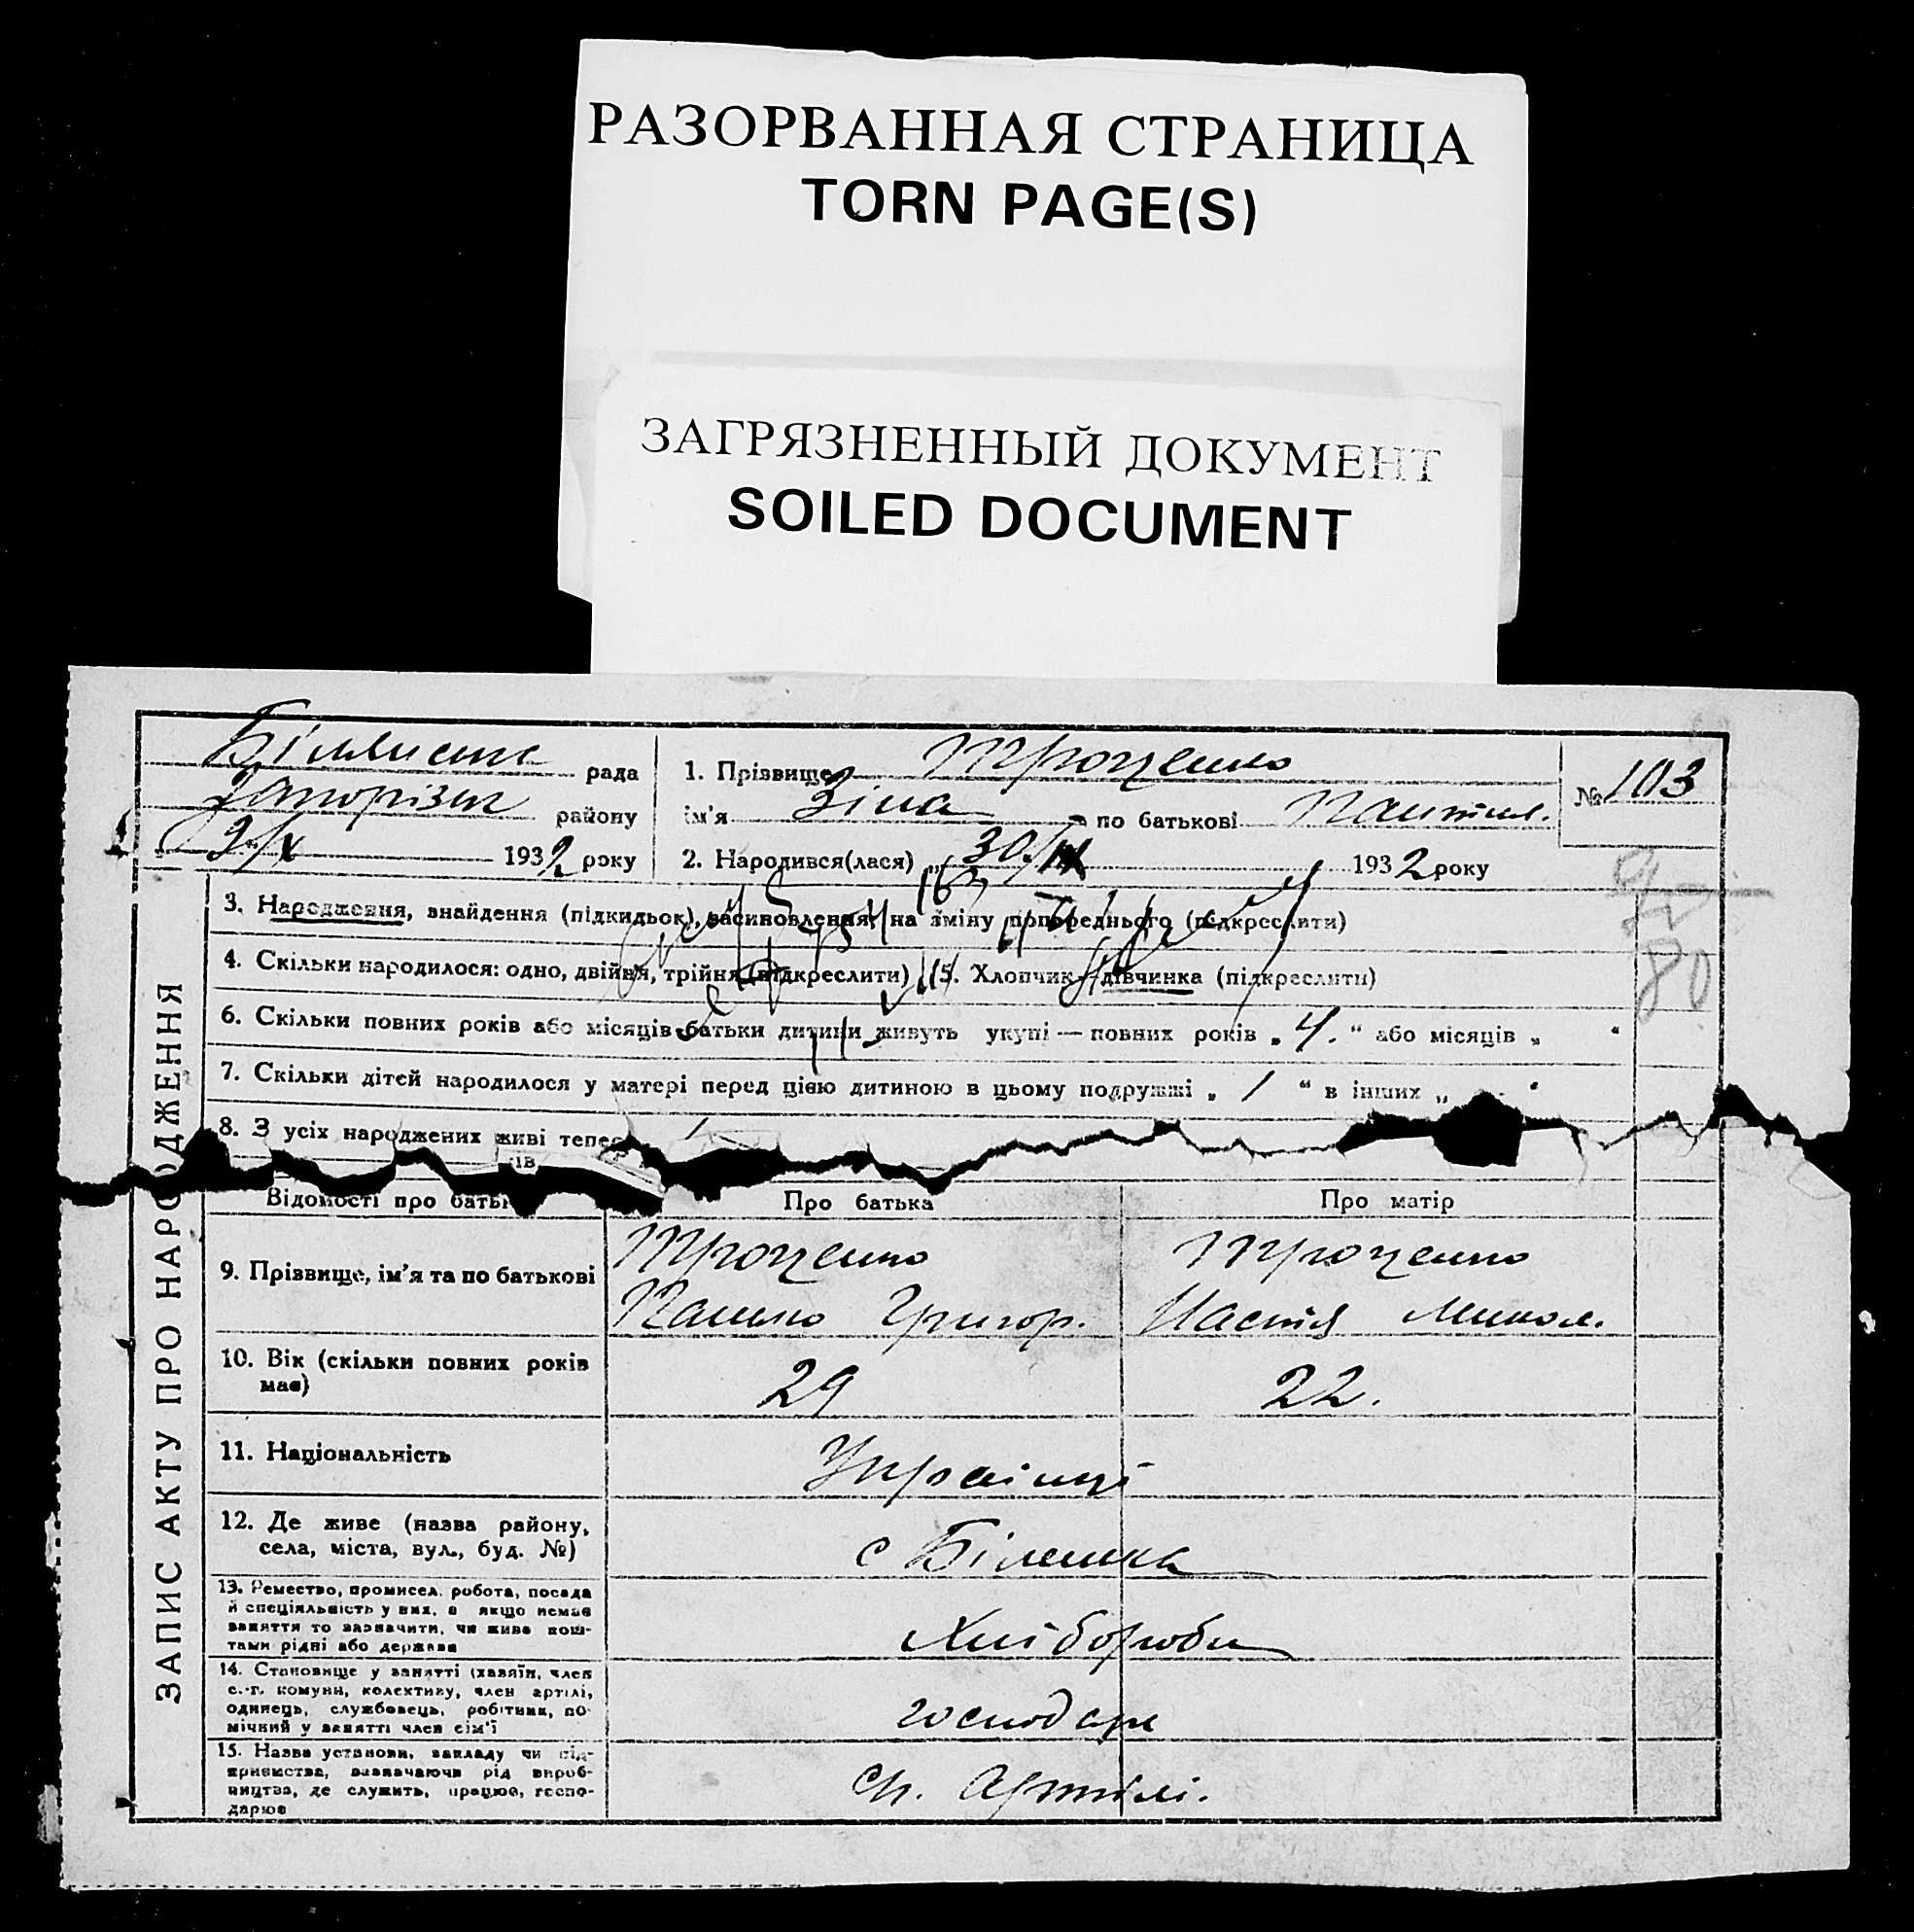 РАЗОРВАННАЯ СТРАНИЦА
TORN PAGE(S)
ЗАГРЯЗНЕННЫЙ ДОКУМЕНТ
SOILED DOCUMENT
ЗАПИС АКТУ ПРО НАРОДЖЕННЯ
рада
району
1932 року
1. Прізвище Троценко
ім'я Зіна по батькові
2. Народився(лася) „30/IX 1932 року
№ 103
3. Народження, знайдення (підкидьок), засиновлення, на зміну попереднього (підкреслити)
80
4. Скільки народилося: одно, двійня, трійня (підкреслити) 5. Хлопчик дівчинка (підкреслити)
6. Скільки повних років або місяців батьки дитини живуть укупі — повних років „4.“ або місяців „ “
7. Скільки дітей народилося у матері перед цією дитиною в цьому подружжі „1“ в інших „ “
8. З усіх народжених живі тепер
Відомості про батьків
Про батька
Про матір
9. Прізвище, ім'я та по батькові
Троценко
Павло Григор.
Троценко
Настя Микол.
10. Вік (скільки повних років
має)
29
22.
11. Національність
Українці
12. Де живе (назва району,
села, міста, вул., буд. №)
с Біленька
13. Ремество, промисел, робота, посада
й спеціяльність у них, а якщо немає
заняття то зазначити, чи живе кош-
тами рідні або держави
Хлібороби
14. Становище у занятті (хазяїн, член
с.-г. комуни, колективу, член артілі,
одинець, службовець, робітник, по-
мічний у занятті член сім'ї
господарі
15. Назва установи, закладу чи під-
приємства, зазначаючи рід вироб-
ництва, де служить, працює, госпо-
дарює
Артілі.